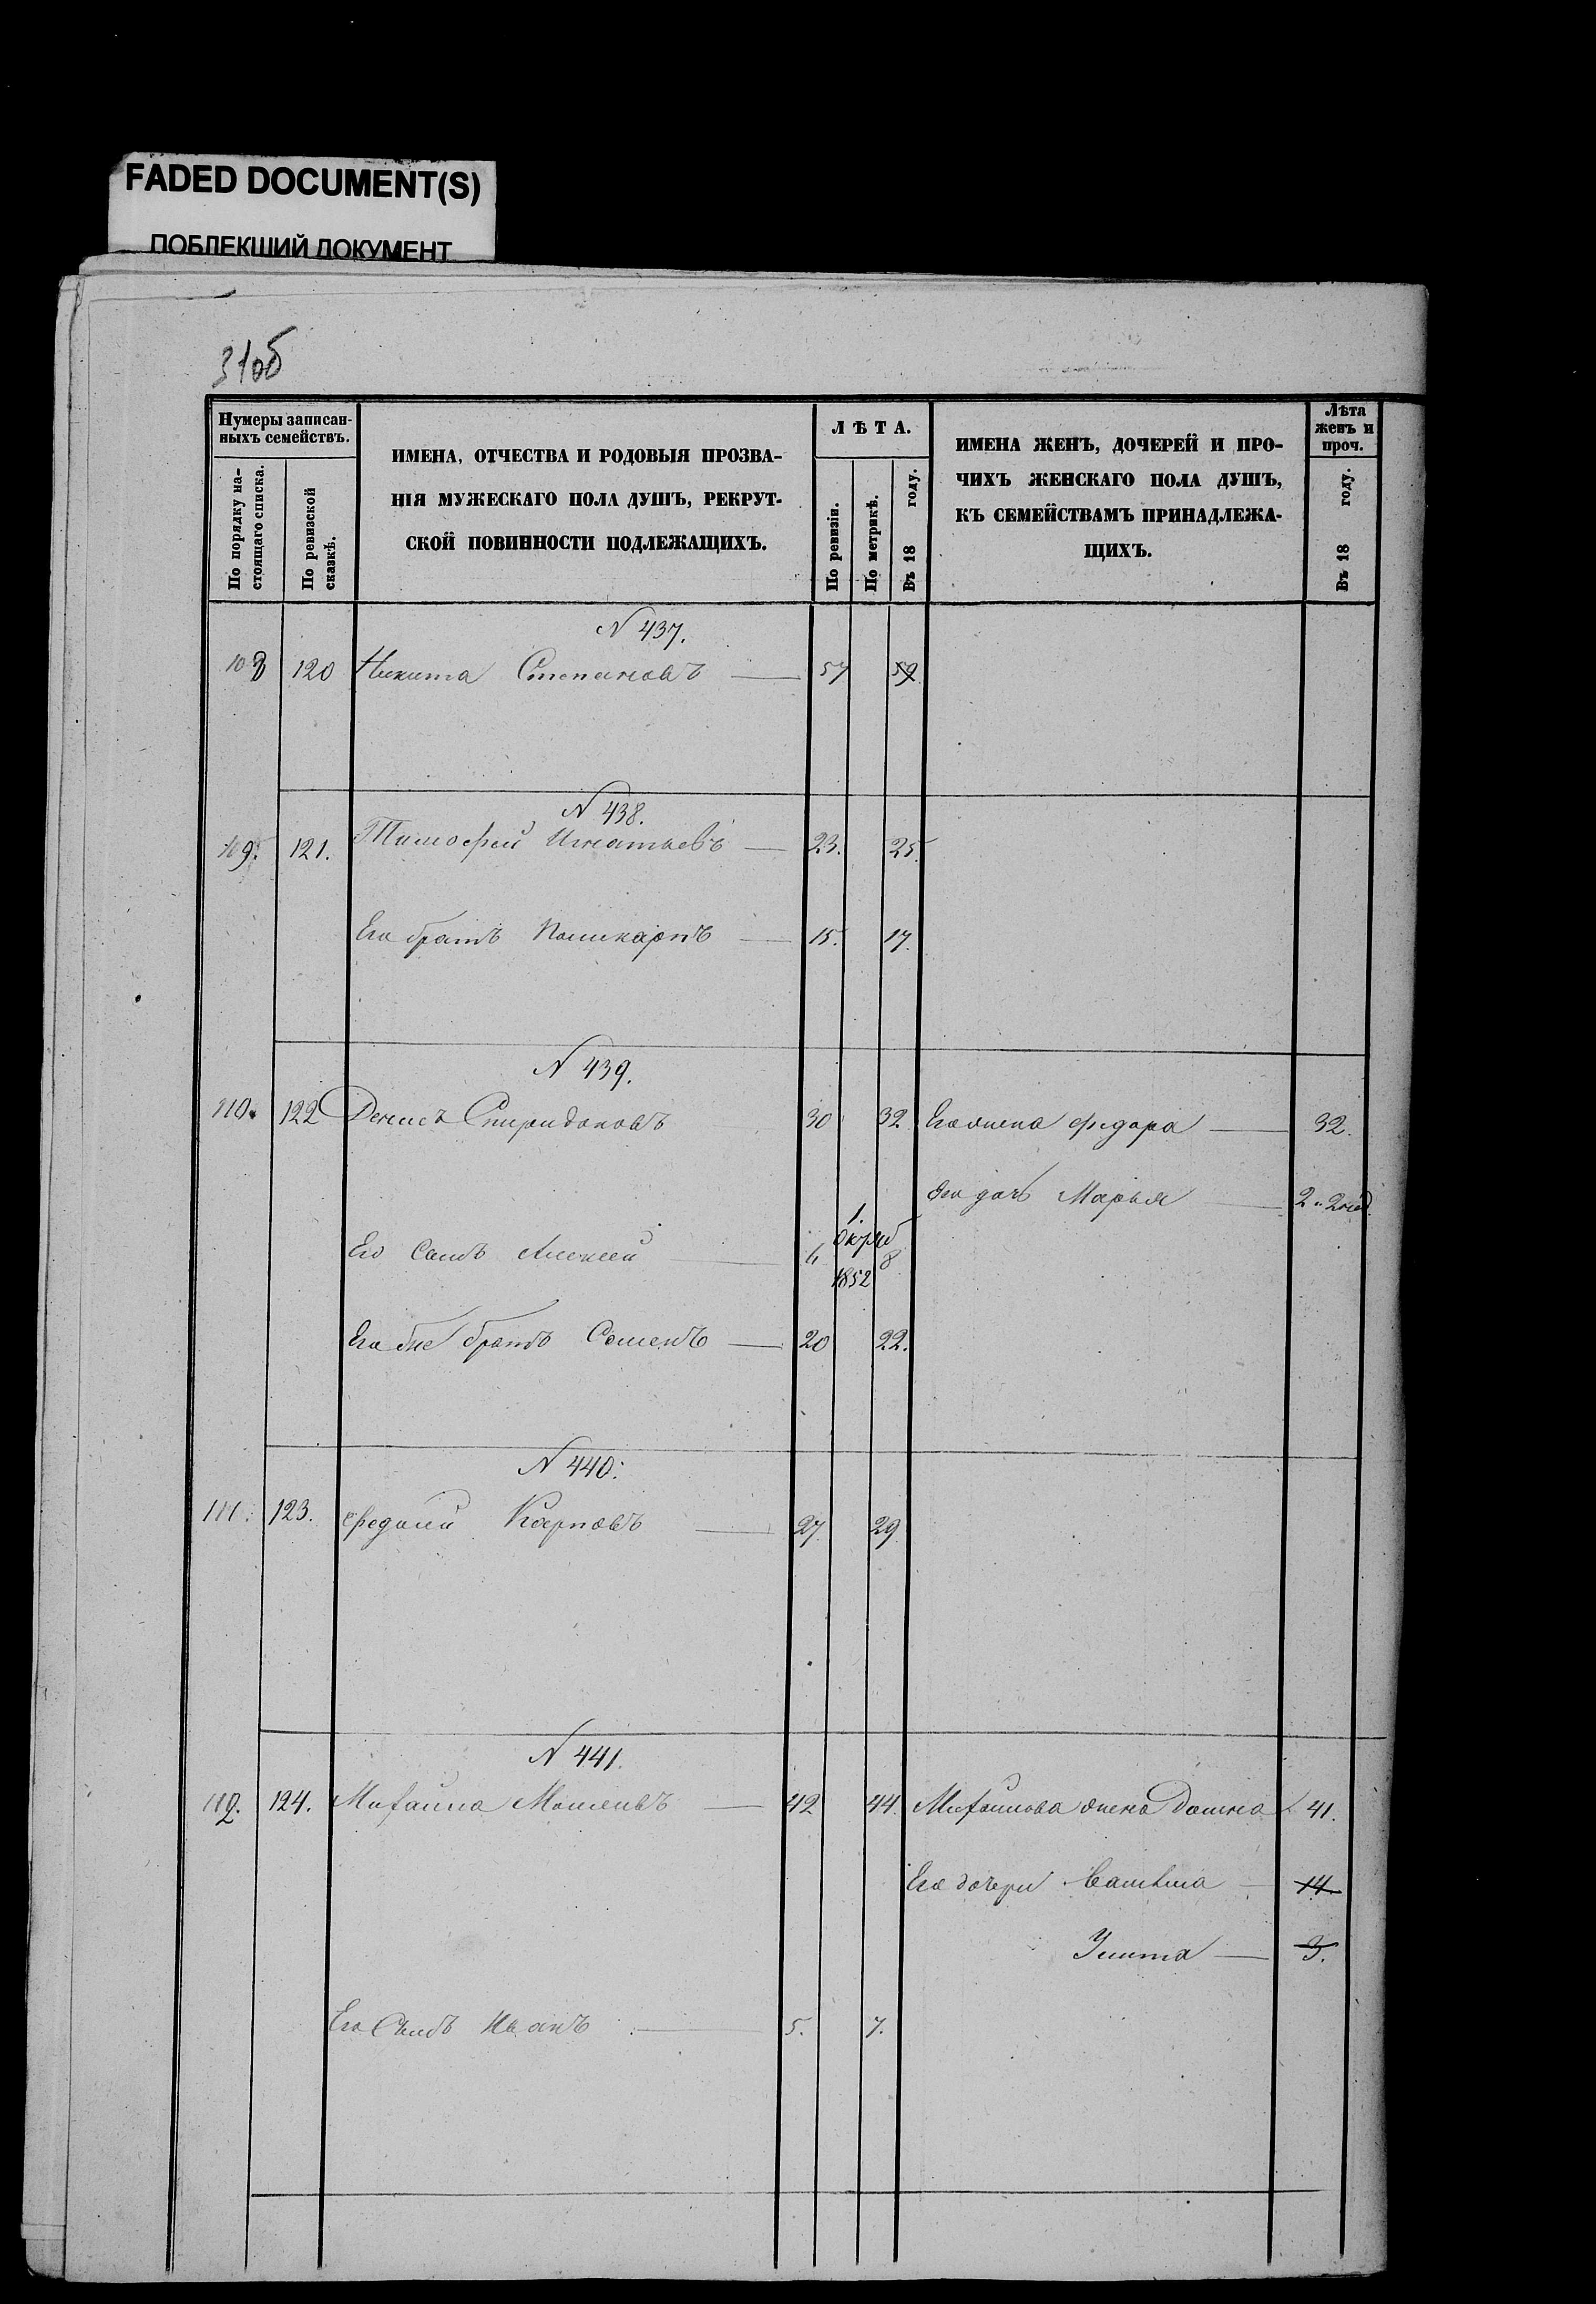 FADED DOCUMENT(S)
ПОБЛЕКШИЙ ДОКУМЕНТ
31об
Нумеры записан-
ныхъ семействъ.
По порядку на-
стоящаго списка.
По ревизской
сказкѣ.
ИМЕНА, ОТЧЕСТВА И РОДОВЫЯ ПРОЗВА-
НІЯ МУЖЕСКАГО ПОЛА ДУШЪ, РЕКРУТ-
СКОЙ ПОВИННОСТИ ПОДЛЕЖАЩИХЪ.
ЛѢТА.
По ревизіи.
По метрикѣ.
Въ 18 году.
ИМЕНА ЖЕНЪ, ДОЧЕРЕЙ И ПРО-
ЧИХЪ ЖЕНСКАГО ПОЛА ДУШЪ,
КЪ СЕМЕЙСТВАМЪ ПРИНАДЛЕЖА-
ЩИХЪ.
Лѣта
женъ и
проч.
Въ 18 году.
N 437.
108 120 Никита Степановъ 57 59
N 438.
109. 121. Тимофей Игнатьевъ 23. 25.
Его братъ Поликарпъ 15. 17.
N 439.
110. 122 Денисъ Спиридоновъ 30 32 Его жена Федора 32.
Его дочь Марья 2
1.
Его сынъ Алексей 6 8
1852
Его братъ Семенъ 20 22.
N 440.
111. 123. Карповъ 27 29
N 441.
112. 124. Михайла 42 44. Михайлова жена Домна 41.
Его дочери 14.
Улита 3.
Его сынъ Иванъ 5. 7.